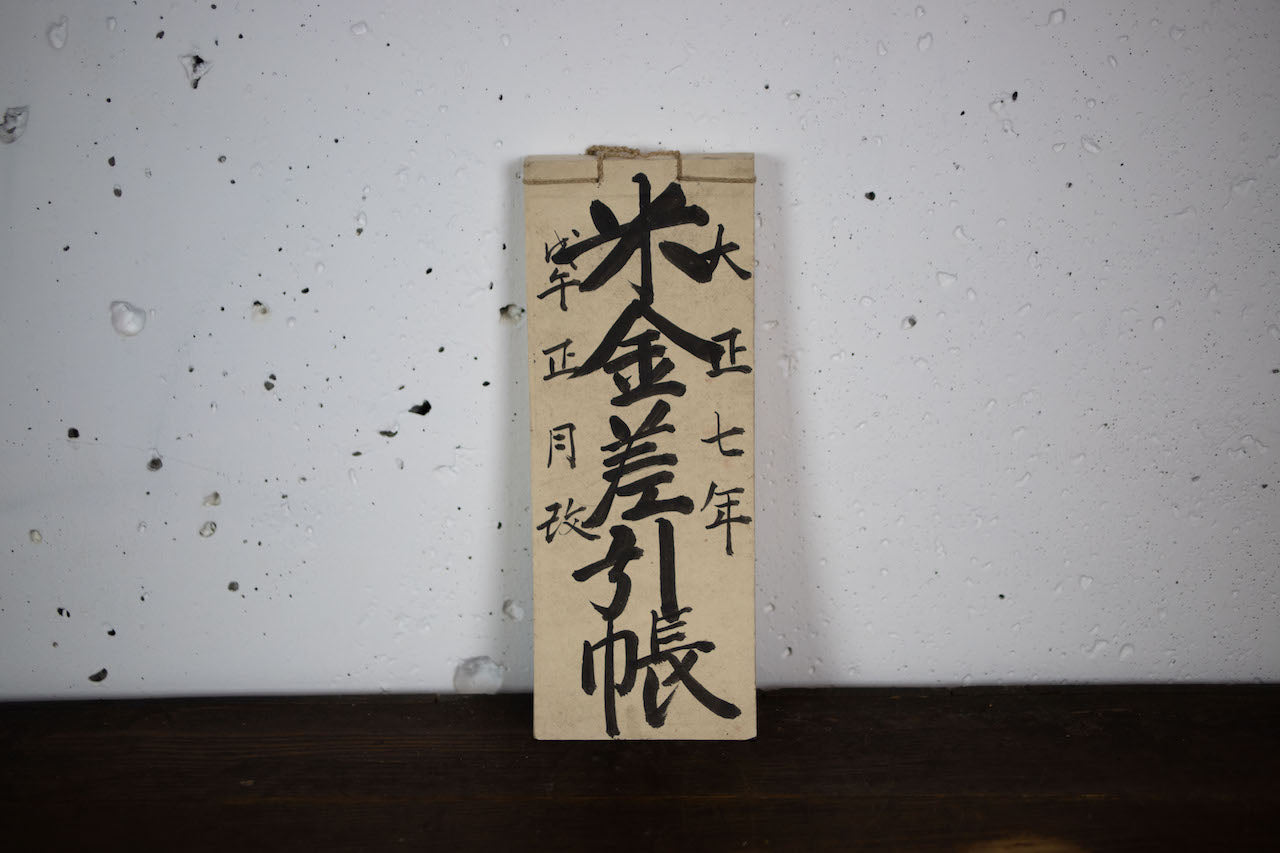 大正七年
米金差引帳
戊午正月改